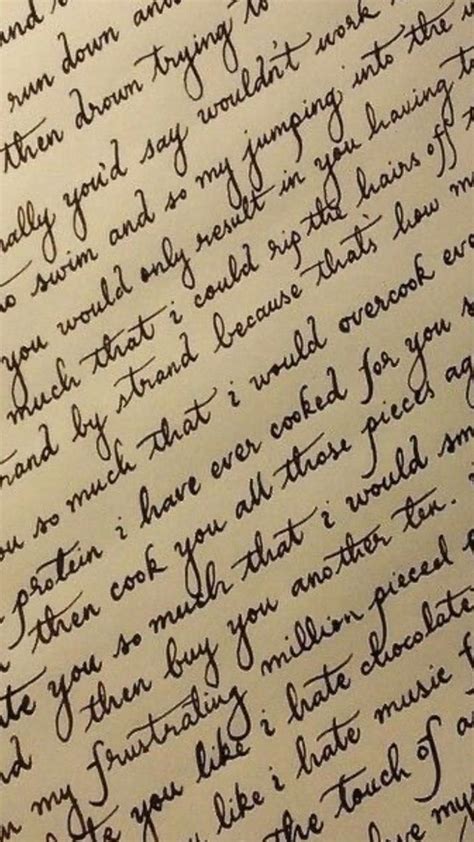 and
run down and
then drown trying to
nally you'd say wouldn't work
to swim and so my jumping into the w
you would only result in you having to
much that i could rip the hairs off
rand by strand because that's how m
ou so much that i would overcook eve
protein i have ever cooked for you s
then cook you all those pieces ag
ate you so much that i would sm
nd then buy you another ten.
n my frustrating million pieced
ate you like i hate chocolate
like i hate music f
the touch of a
ive my